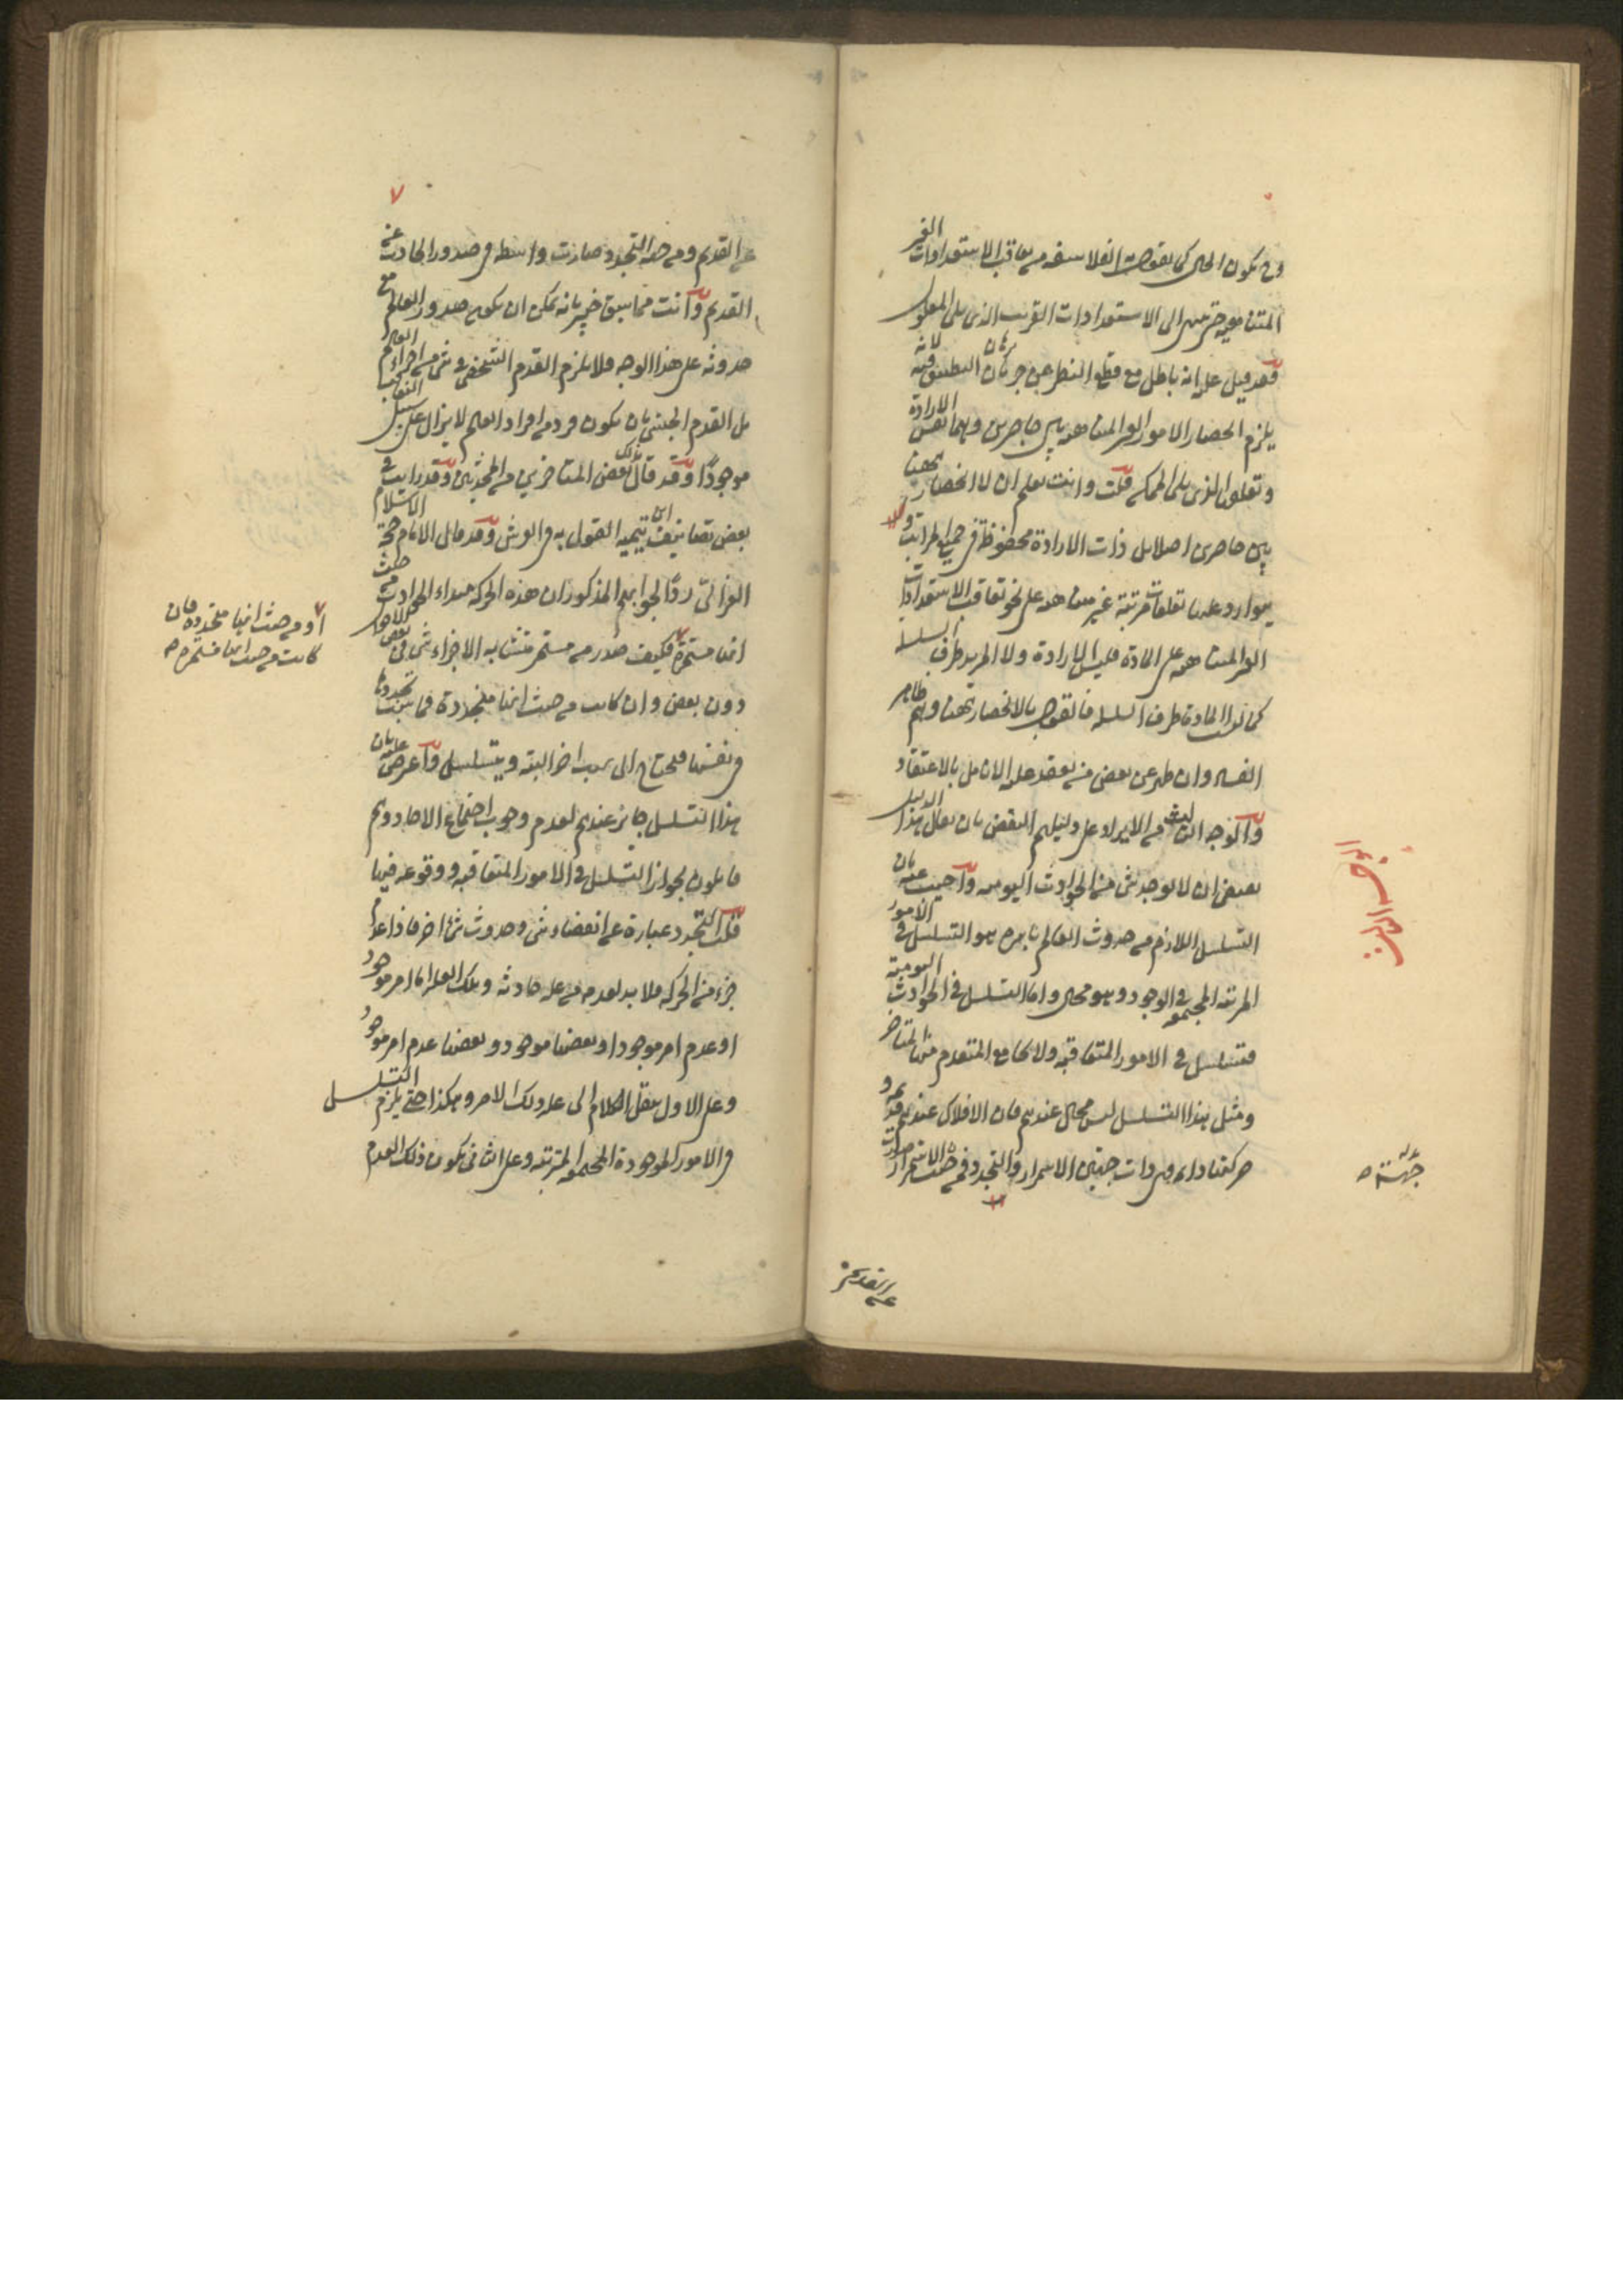 وح يكون الحال كما يقوله الفلاسفه من تعاقب الاستعدادات الغير
المتناهيه حتى ينتهى الى الاستعدادات القريب الذى يلى المعلول
وقد قيل عليه انه باطل مع قطع النظر عن جريان برهان التطبيق فيه لانه
يلزم انحصار الامور الغير المتناهيه بين حاصرين وهما نفس الارادة
وتعلقها الذى يلى الممكن قلت وانت تعلم ان لا انحصار ههنا
بين حاصرين اصلا بل ذات الارادة محفوظة فى جميع المراتب و
يتوارد عليها تعلقات مرتبة غير متناهيه على نحو تعاقب الاستعدادات
الغير المتناهيه على المادة فليس الارادة ولا المريد طرف السلسله
كما ليس المادة طرف السلسله فالقول بالانحصار ههنا وهم ظاهر
الفساد وان ظهر عن بعض من يعقد عليه الانامل بالاعتقاد
والوجه الثالث من الايراد على دليلهم النقض بان يقال هذا الدليل
يقتضى ان لا يوجد شئ من الحوادث اليوميه واجيب عنه بان
التسلسل اللازم من حدوث العالم باسره هو التسلسل فى الامور
المرتبه المجتمعه فى الوجود وهو محال واما التسلسل فى الحوادث اليومية
فتسلسل فى الامور المتعاقبه ولا يجامع المتقدم منها المتاخر
ومثل هذا التسلسل ليس بمحال عندهم فان الافلاك عندهم قديمه و
حركتها دائمه وهى ذات جهتين الاستمرار والتجدد فمن جهة الاستمرار صدرت
عن القديم
الوجه الثالث
جهة ص
عن القديم ومن جهة التجدد صارت واسطه فى صدور الحادث عن
القديم وانت مما سبق خبير بانه يمكن ان يكون صدور العالم مع
حدوثه على هذا الوجه فلا يلزم القدم الشخصى فى شئ من اجزاء العالم
بل القدم الجنسى بان يكون فرد من افراد العالم لا يزال على سبيل التعاقب
موجودًا وقد قال بذلك بعض المتاخرين من المحدثين وقد رايت فى
بعض تصانيف ابن تيميه القول به فى العرش وقد قال الامام حجة الاسلام
الغزالى ردًا لجوابهم المذكور ان هذه الحركه مبداء الحوادث من حيث
انها مستمرة فكيف صدر من مستمر متشابه الاجزاء شئ فى بعض الاحوال
دون بعض وان كانت من حيث انها متجددة فما سبب تجددها
فى نفسها فيحتاج الى سبب اخر البته ويتسلسل واعترض عليه بان
هذا التسلسل جايز عندهم لعدم وجوب اجتماع الاحاد وهم
قايلون بجواز التسلسل فى الامور المتعاقبه ووقوعه فيها
قلت التجدد عبارة عن انقضاء شئ وحدوث شئ اخر فاذا عدم
جزء من الحركه فلا بد لعدمه من عله حادثه وتلك العله اما امر موجود
او عدم امر موجود او بعضها موجود وبعضها عدم امر موجود
وعلى الاول ينقل الكلام الى عله ذلك الامر وهكذا حتى يلزم التسلسل
فى الامور الموجودة المجتمعه المرتبه وعلى الثانى يكون ذلك العدم
او من حيث انها متجدده فان
كانت من حيث انها مستمره ص